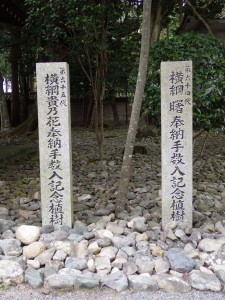 第六十四代
横綱 曙奉納手数入記念植樹
第六十五代
横綱貴乃花奉納手数入記念植樹